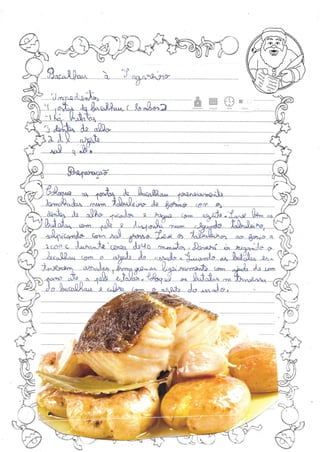 Bacalhau à Lagareiro
Ingredientes
4 postas de bacalhau (lombos)
1 kg batatas
3 dentes de alho
2 dl azeite
sal q.b.
Preparação
Coloque as postas de bacalhau previamente
demolhadas num tabuleiro de forno com os
dentes de alho picados e regue com azeite. Lave bem as
batatas com pele e disponha num segundo tabuleiro,
salpicando com sal grosso. Leve os tabuleiros ao forno a
200º C durante cerca de 40 minutos. Deverá ir regando o
bacalhau com o azeite do assado. Quando as batatas es-
tiverem assadas, ligeiramente com ajuda de um
pano até a pele estalar. Coloque as batatas na travessa
do bacalhau e cubra com o azeite do assado.